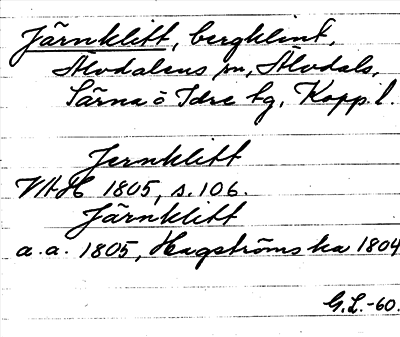 Järnklitt, bergklint,
Älvdalens sn, Älvdals,
Särna o Idre tg, Kopp. l.
Jernklitt
VAH 1805, s. 106.
Järnklitt
a.a. 1805, Hagströms ka 1804
G.L.-60.